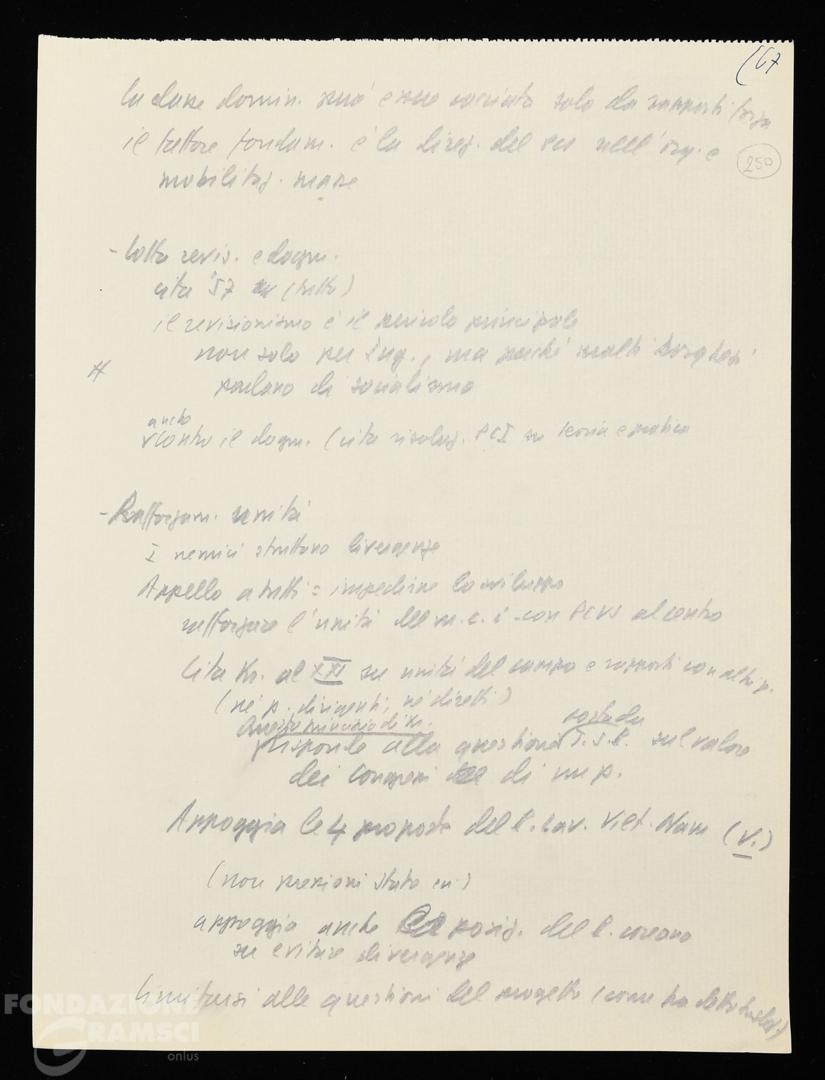 (67
la classe domin. può essere cacciata solo da rapporti forza
il fattore fondam. è la direz. del PC nell'org. e
250
mobilitaz. masse
- lotta revis. e dogm.
cita '57 (tutto)
il revisionismo è il pericolo principale
non solo per , ma perché molti borghesi
parlano di socialismo
anche
contro il dogm. (cita risoluz. PCI su teoria e pratica
- Rafforzam. unità
I nemici sfruttano divergenze
Appello a tutti = impedirne lo sviluppo
rafforzare l'unità del m.c.i. con PCUS al centro
Cita Kr. al XXI su unità del campo e rapporti con altri p.
(né p. dirigenti, né diretti)
Questo principio di Kr. posta da
risponde alla questione sul valore
dei congressi di un p.
Appoggia le 4 proposte del P. Lav. Viet-Nam (V.)
(non pressioni stato )
appoggia anche posiz. del P. coreano
su evitare divergenze
limitarsi alle questioni del progetto (come ha detto
FONDAZIONE
GRAMSCI
onlus